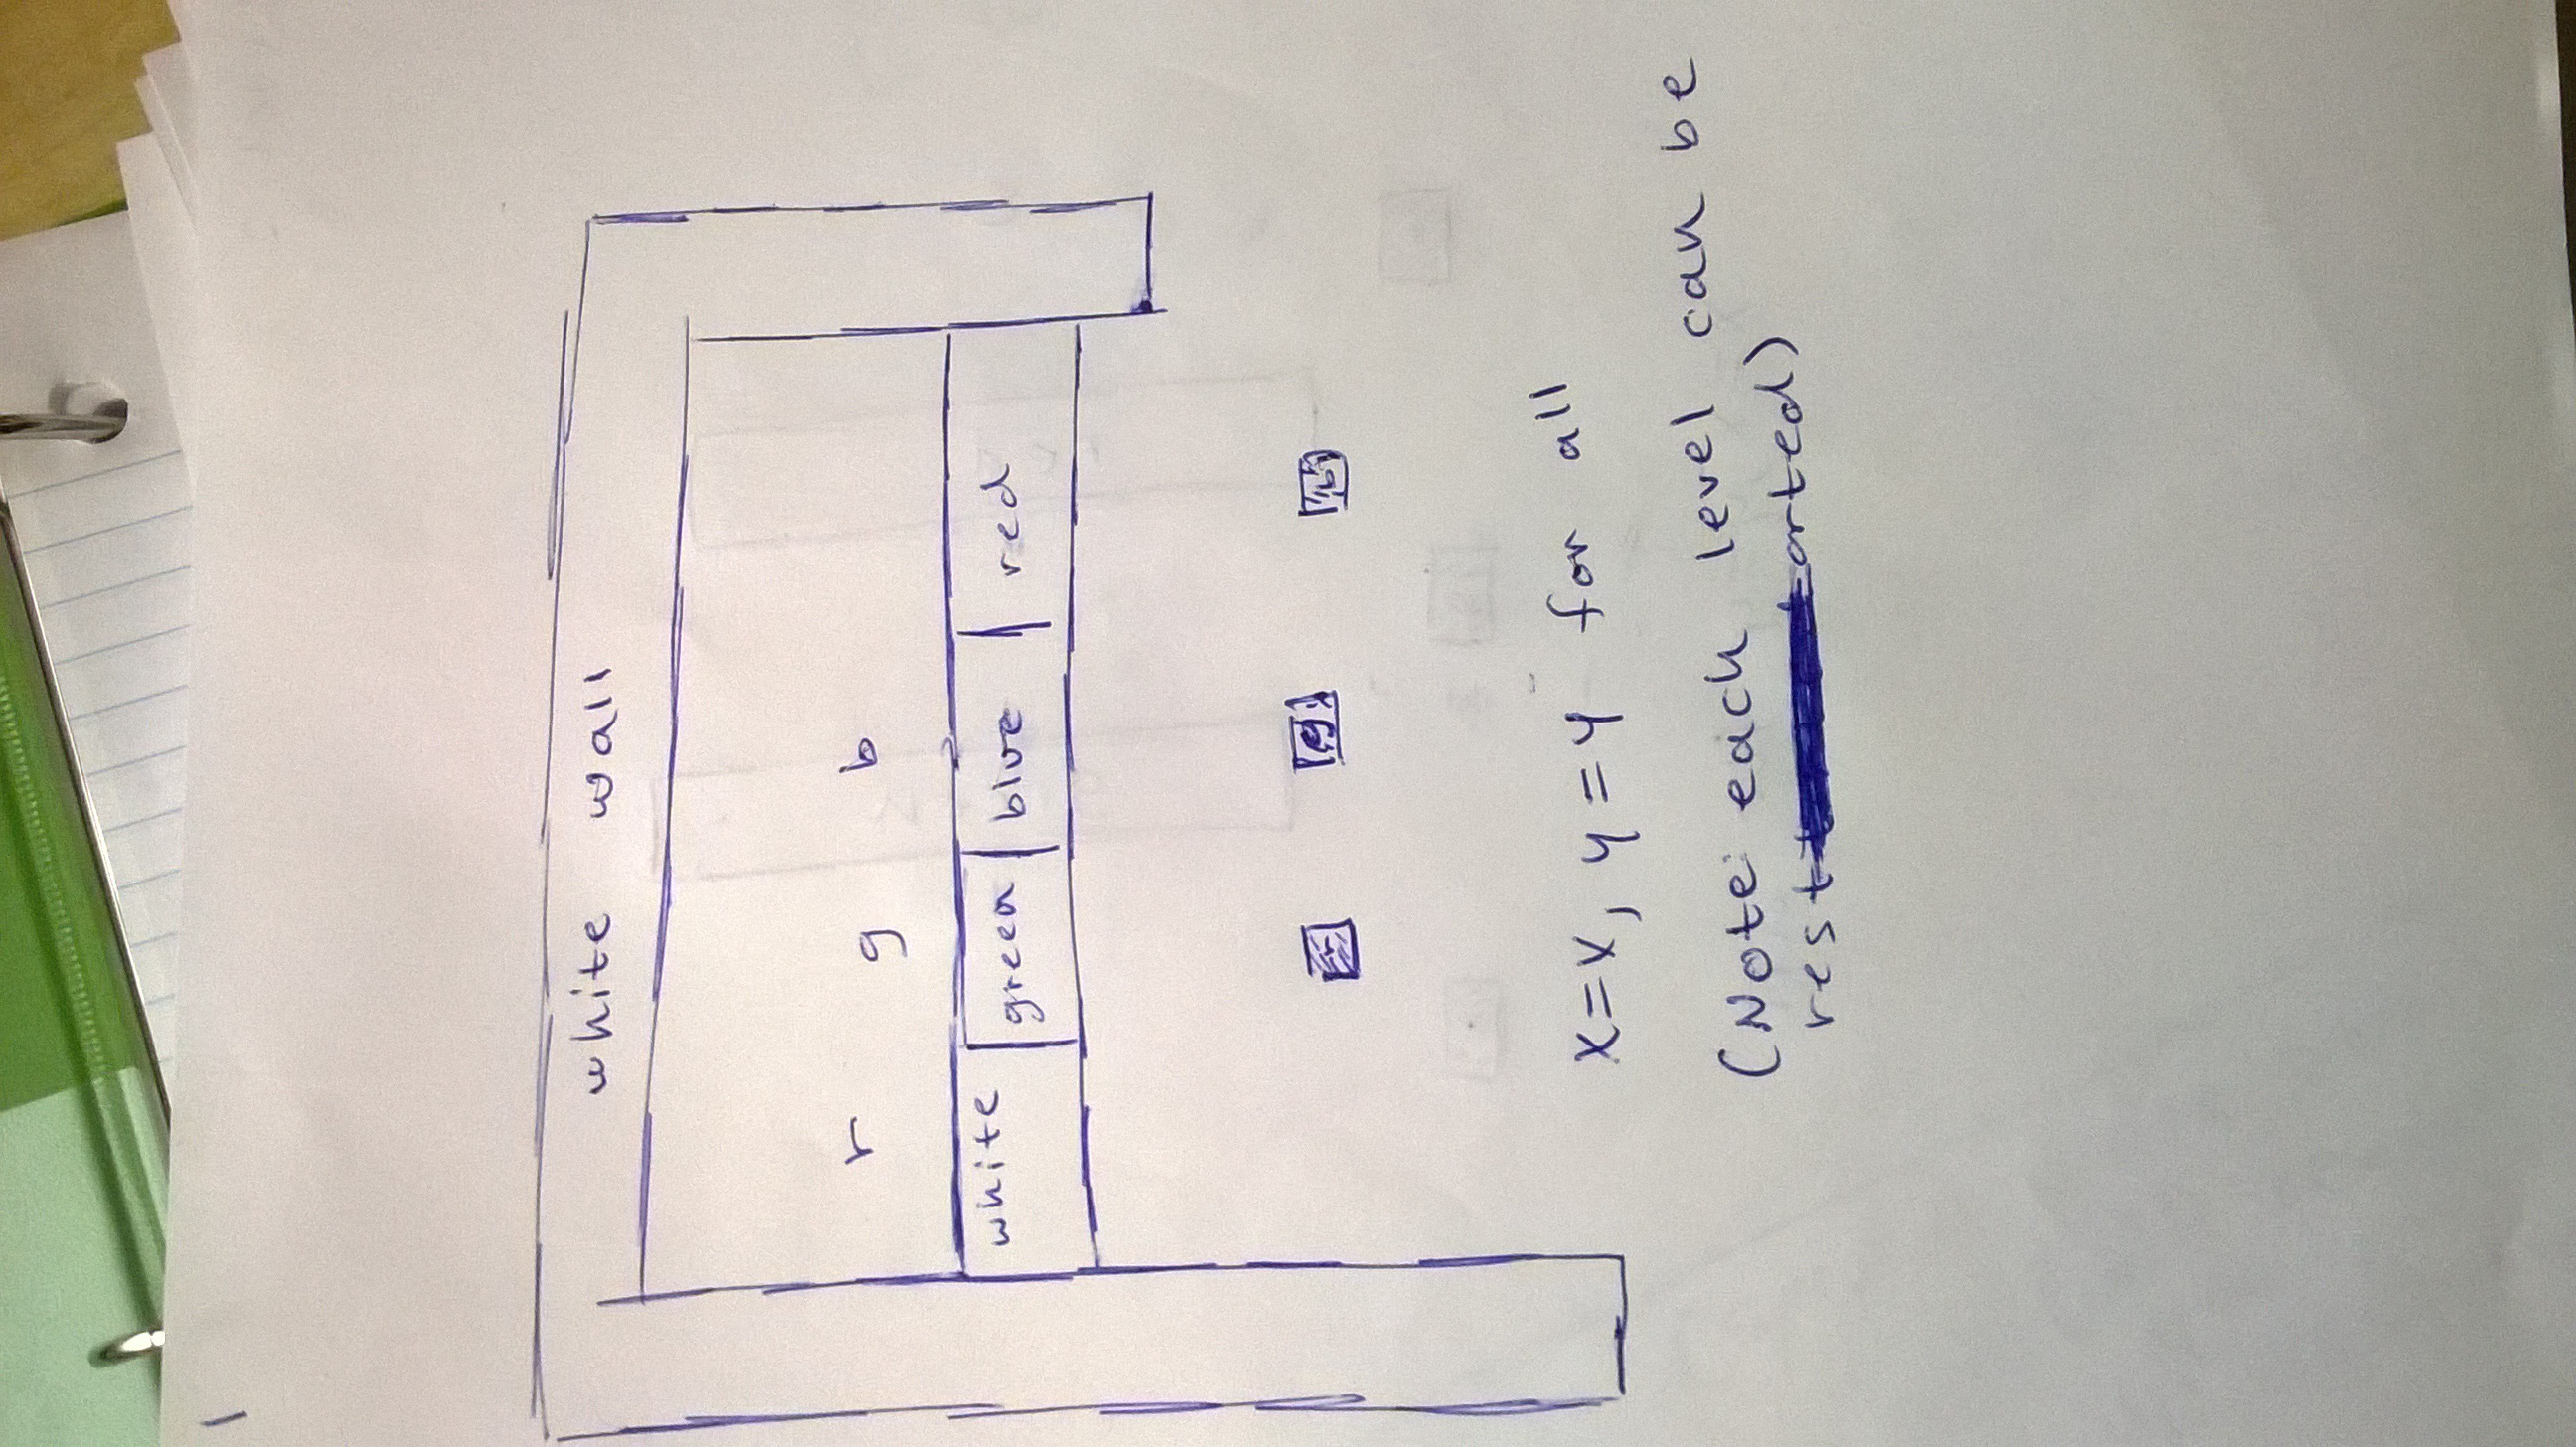 white wall
r g b
white green blue red
r g b
x=x, y=y for all
(Note: each level can be
restarted)